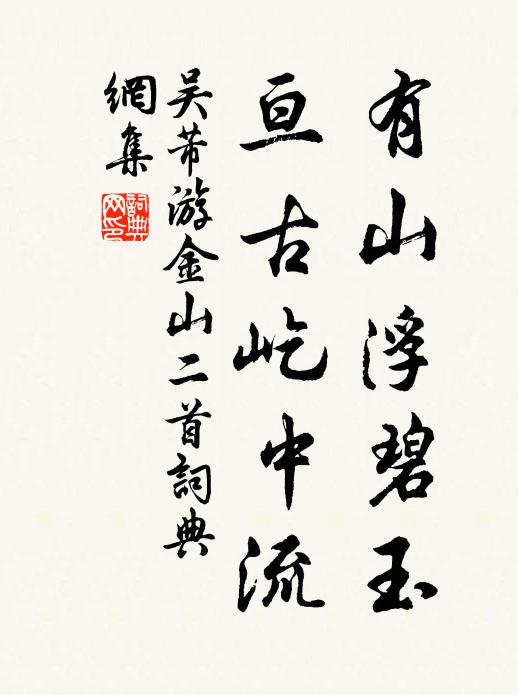 有山浮碧玉
亘古屹中流
吴芾游金山二首詞典
網集
詞典
网印